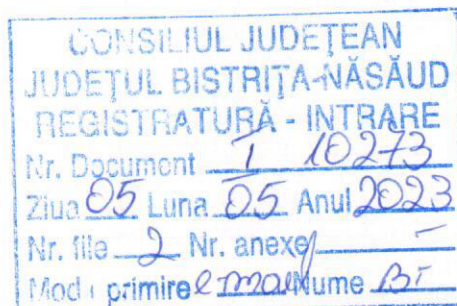 CONSILIUL JUDEȚEAN
JUDEȚUL BISTRIȚA-NĂSĂUD
REGISTRATURĂ - INTRARE
Nr. Document I 10273
Ziua 05 Luna 05 Anul 2023
Nr. file 2 Nr. anexe -
Mod primire email Nume